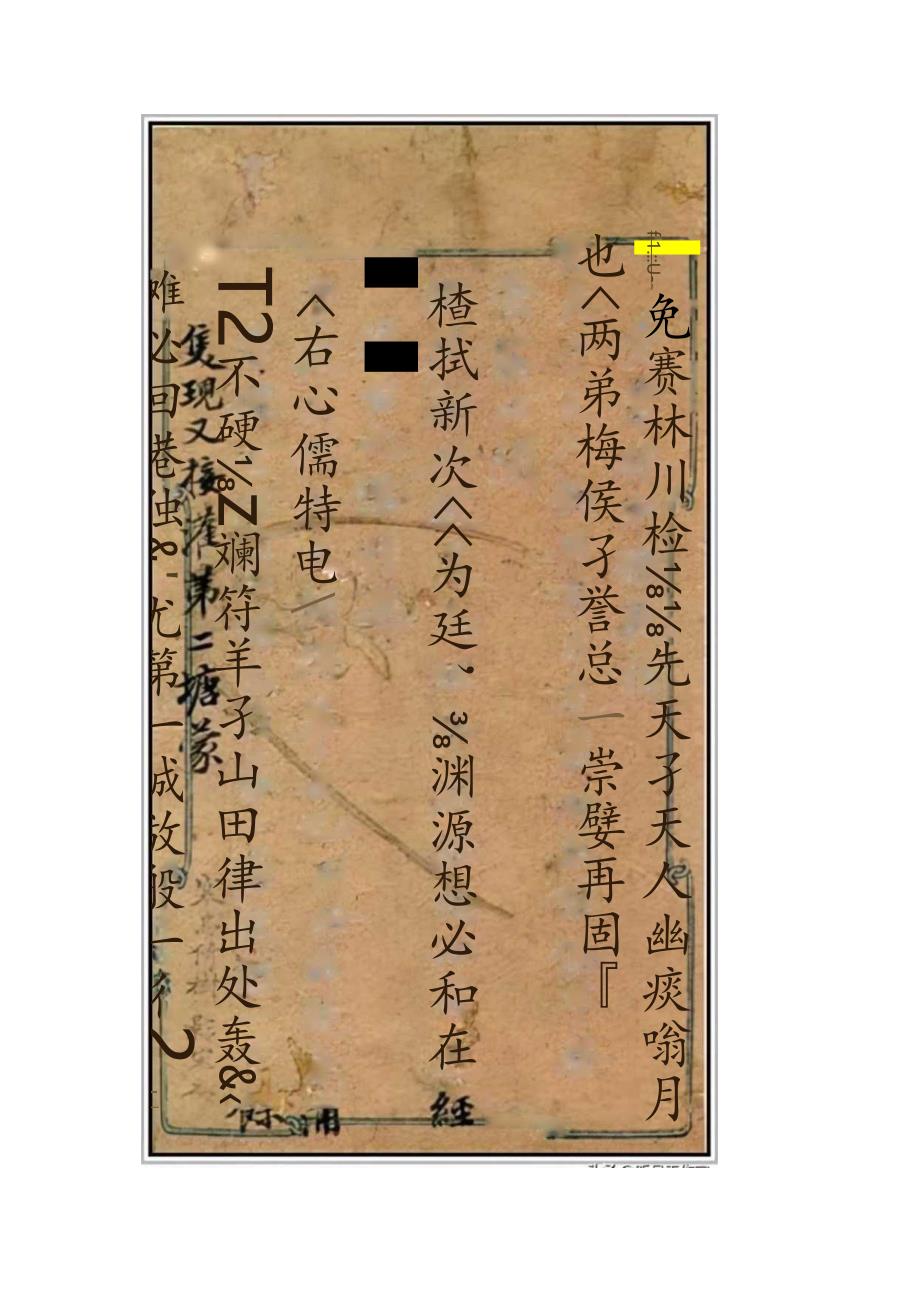 免赛林川检⅛⅛先天孑天人幽痰嗡月
也<两弟梅侯孑誉总一崇嬖再固『
楂拭新次<<为廷，⅜渊源想必和在經
<右心儒特电/
T2不硬⅛Z斓符羊孑山田律出处轰&«
隻現又接灌第二塘蒙
难必回巷蚀&'尤第一成放般一2